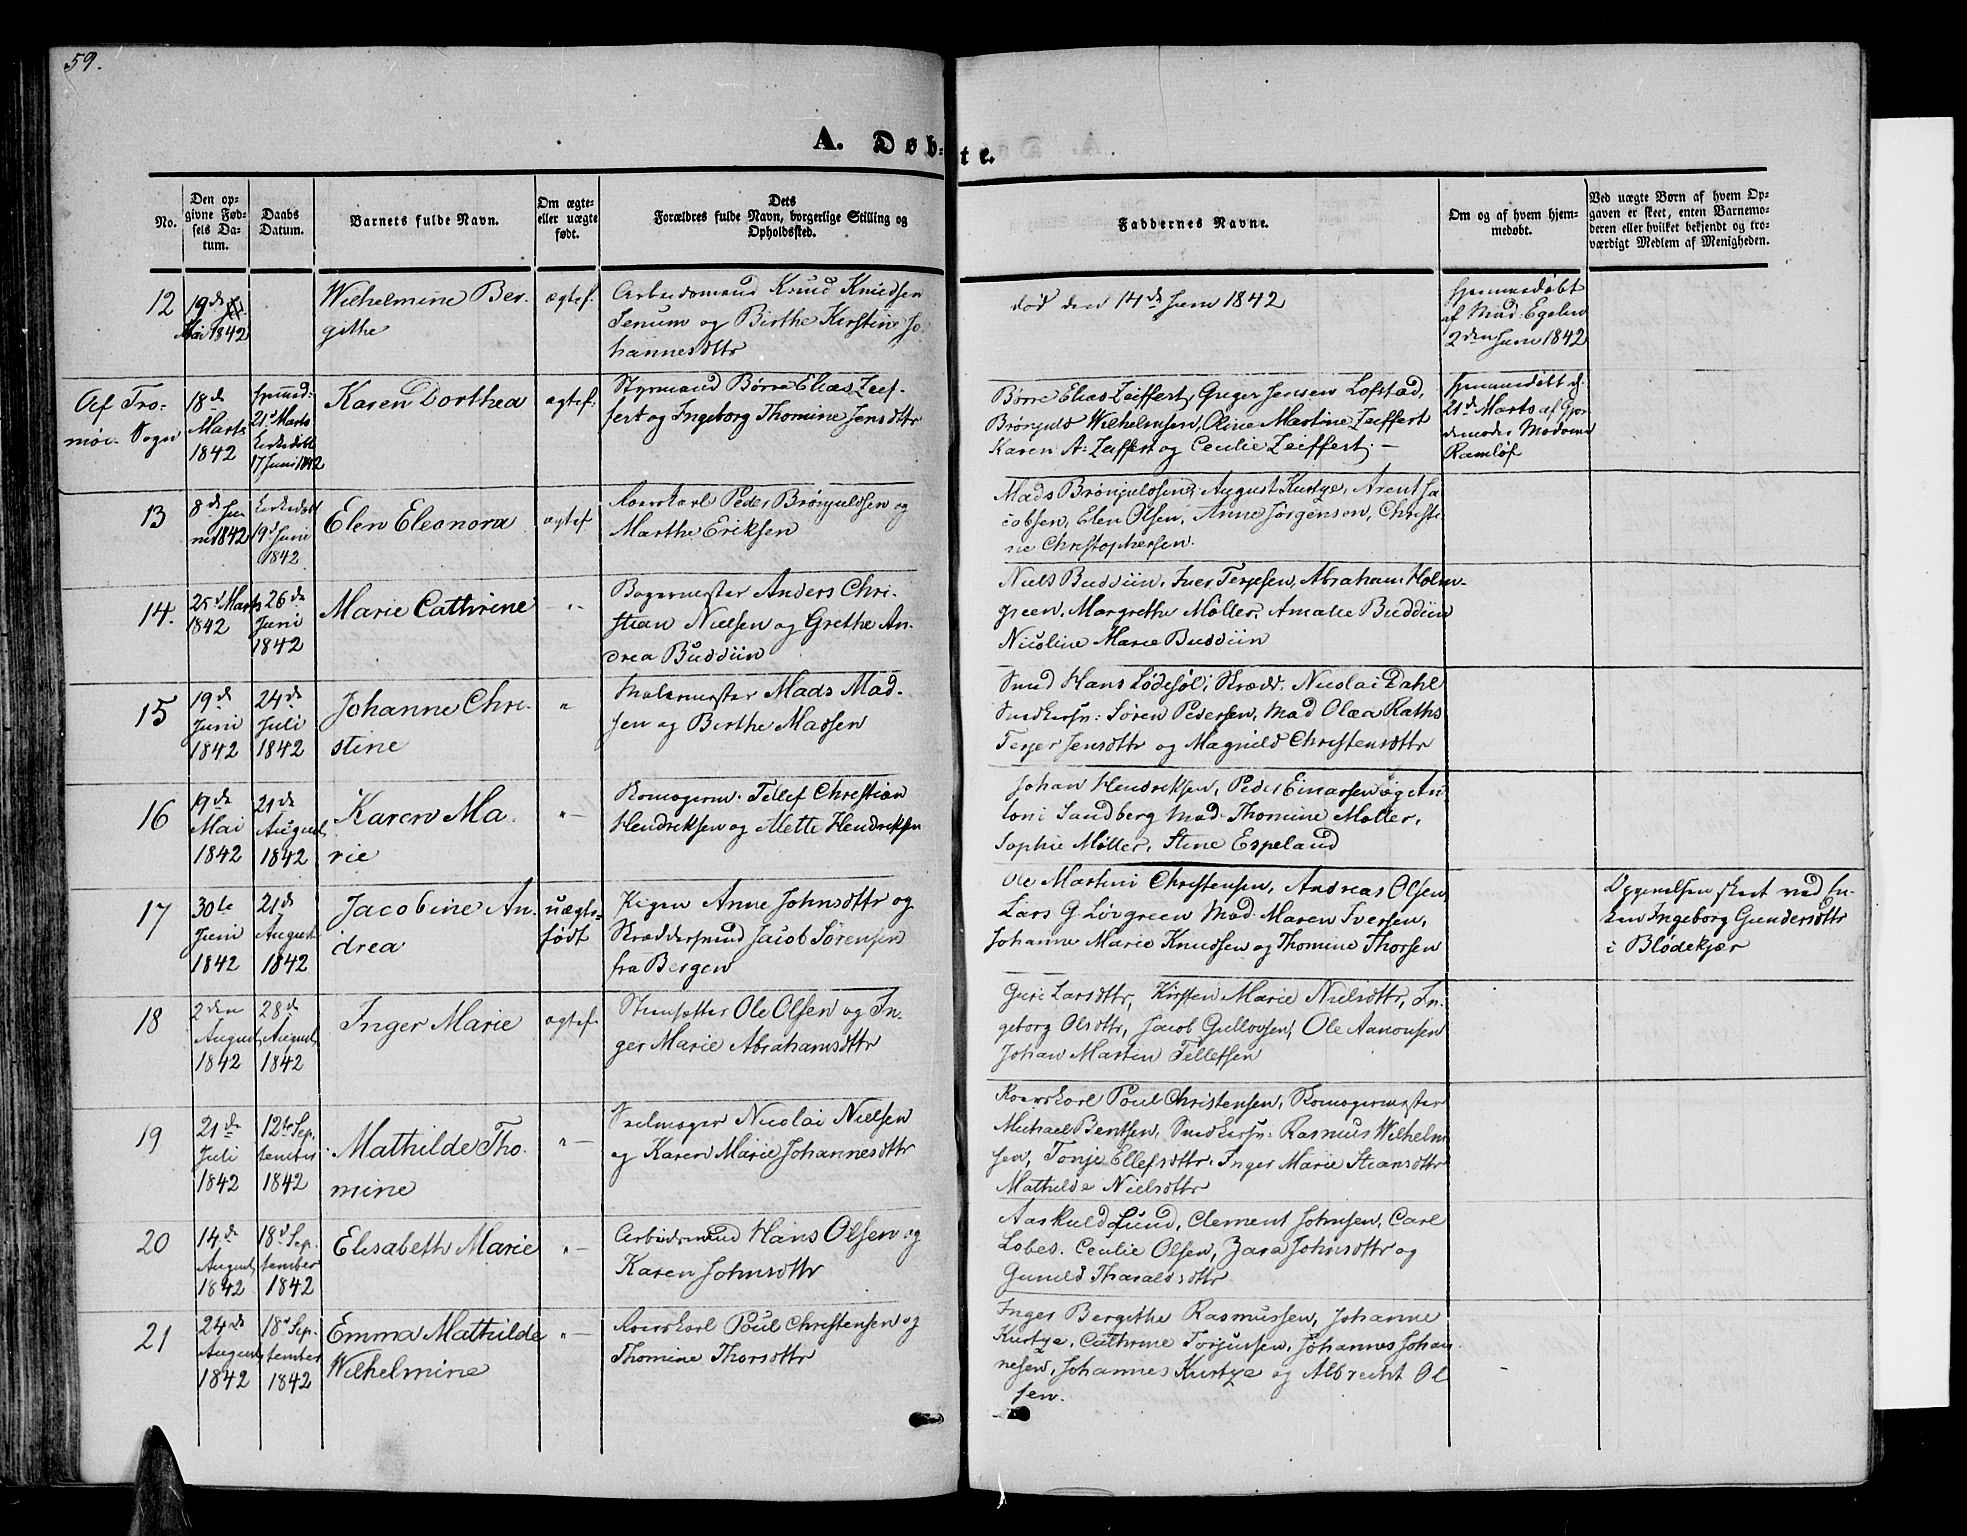 59.
A. Døb-
te.
No.
Den op-
givne Fød-
sels Da-
tum.
Daabs
Datum.
Barnets fulde Navn.
Om ægte-
eller uægte
født.
Dets
Forældres fulde Navn, borgerlige Stilling og
Opholdssted.
Faddernes Navne.
Om og af hvem hjem-
medøbt.
Ved uægte Børn af hvem Op-
gaven er skeet, enten Barnemo-
deren eller hvilket bekjendt og tro-
værdigt Medlem af Menigheden.
12
19de
Mai 1842
Wilhelmine Ber-
githe
ægtef.
Arbeidsmand Knud Knudsen
Senum og Birthe Kirstine Jo-
hannesdttr
død den 14de Juni 1842
hjemmedøbt
af Mad: Egelun
2den Juni 1842
Af Tro-
møe Sogn
18de
Marts
1842
hjemmd-
21d Marts
kirkedøbt
17 Juni 1842
Karen Dorthea
ægtef:
Styrmand Børre Elias Zeif-
fert og Ingeborg Thomine Jensdttr
Børre Elias Zeiffert, Greger Jensen Lofstad,
Brønjuld Wilhelmsen, Oline Martine Zeiffert
Karen A: Zeiffert og Cecilie Zeiffert. —
hjemmedøbt d.
21de Marts af Gjor-
demoder Madame
Ramløf
13
8de Ju-
ni 1842
kirkedøbt
19d Juni
1842
Elen Eleonora
ægtef.
Roerskarl Peder Brønjuldsen og
Marthe Eriksen
Mads Brønjuldsen, August Kurtze, Arent Ja-
cobsen, Elen Olsen, Anne Jørgensen, Christi-
ne Christophersen.
14.
25d Marts
1842
26de
Juni
1842
Marie Cathrine
-"-
Bagermester Anders Chri-
stian Nielsen og Grethe An-
drea Buddün
Niels Buddün, Iver Terjesen, Abraham Holm-
green, Margrethe Møller, Amalie Buddün
Nicoline Marie Buddün
15
19de
Juni
1842
24de
Juli
1842
Johanne Chri-
stine
"
Malermester Mads Mad-
sen og Birthe Madsen
Smed Hans Lødesøl, Skrædd. Nicolai Dahl
Snedkersv: Søren Pedersen, Mad Olea Raths
Terjer Jensdttr og Magnild Christensdttr
16
19de
Mai
1842
21de
August
1842
Karen Ma-
rie
"-
Komagerm. Tellef Christian
Hendriksen og Mette Hendriksen
Johan Hendriksen, Peder Einarsen og An-
toni Sandberg Mad. Thomine Møller,
Sophie Møller, Stine Espeland
17
30te
Juni
1842
21de
August
1842
Jacobine An-
drea
uægte-
født
Pigen Anne Johnsdttr og
Skrædersvend Jacob Sørensen
fra Bergen
Ole Martini Christensen, Andreas Olsen,
Lars G. Løvgreen Mad. Maren Iversen,
Johanne Marie Knudsen og Thomine Thorsen
Opgivelsen skeet ved En-
ken Ingeborg Gundersdttr
i Blødekjær
18
2den
August
1842
28de
August
1842
Inger Marie
ægtef.
Steensætter Ole Olsen og In-
ger Marie Abrahamsdttr
Guri Larsdttr, Kirsten Marie Nielsdttr, In-
geborg Olsdttr, Jacob Gullovsen, Ole Aanonsen
Johan Martin Tellefsen
19
21de
Juli
1842
12te Sep-
tember
1842
Mathilde Tho-
mine
"-
Seilmager Nicolai Nielsen
og Karen Marie Johannesdttr
Roerskarl Poul Christensen, Komagermester
Michael Bentsen, Snedkersv: Rasmus Wilhelm-
sen, Tonje Ellefsdttr. Inger Marie Steansdttr
Mathilde Nielsdttr
20
14de
August
1842
18d Sep-
tember
1842
Elisabeth Marie
"-
Arbeidsmand Hans Olsen og
Karen Johnsdttr
Aaskuld Lund, Clement Johnsen, Carl
Lobes. Cecilie Olsen, Zara Johnsdttr og
Guneld Tharaldsdttr
21
24de
August
1842
18d Sep-
tember
1842
Emma Mathilde
Wilhelmine
"-
Roerskarl Poul Christensen og
Thomine Thorsdttr
Inger Bergithe Rasmussen, Johanne
Kurtze, Cathrine Torjussen, Johannes Johan-
nesen, Johannes Kurtze og Albrecht Ol-
sen.